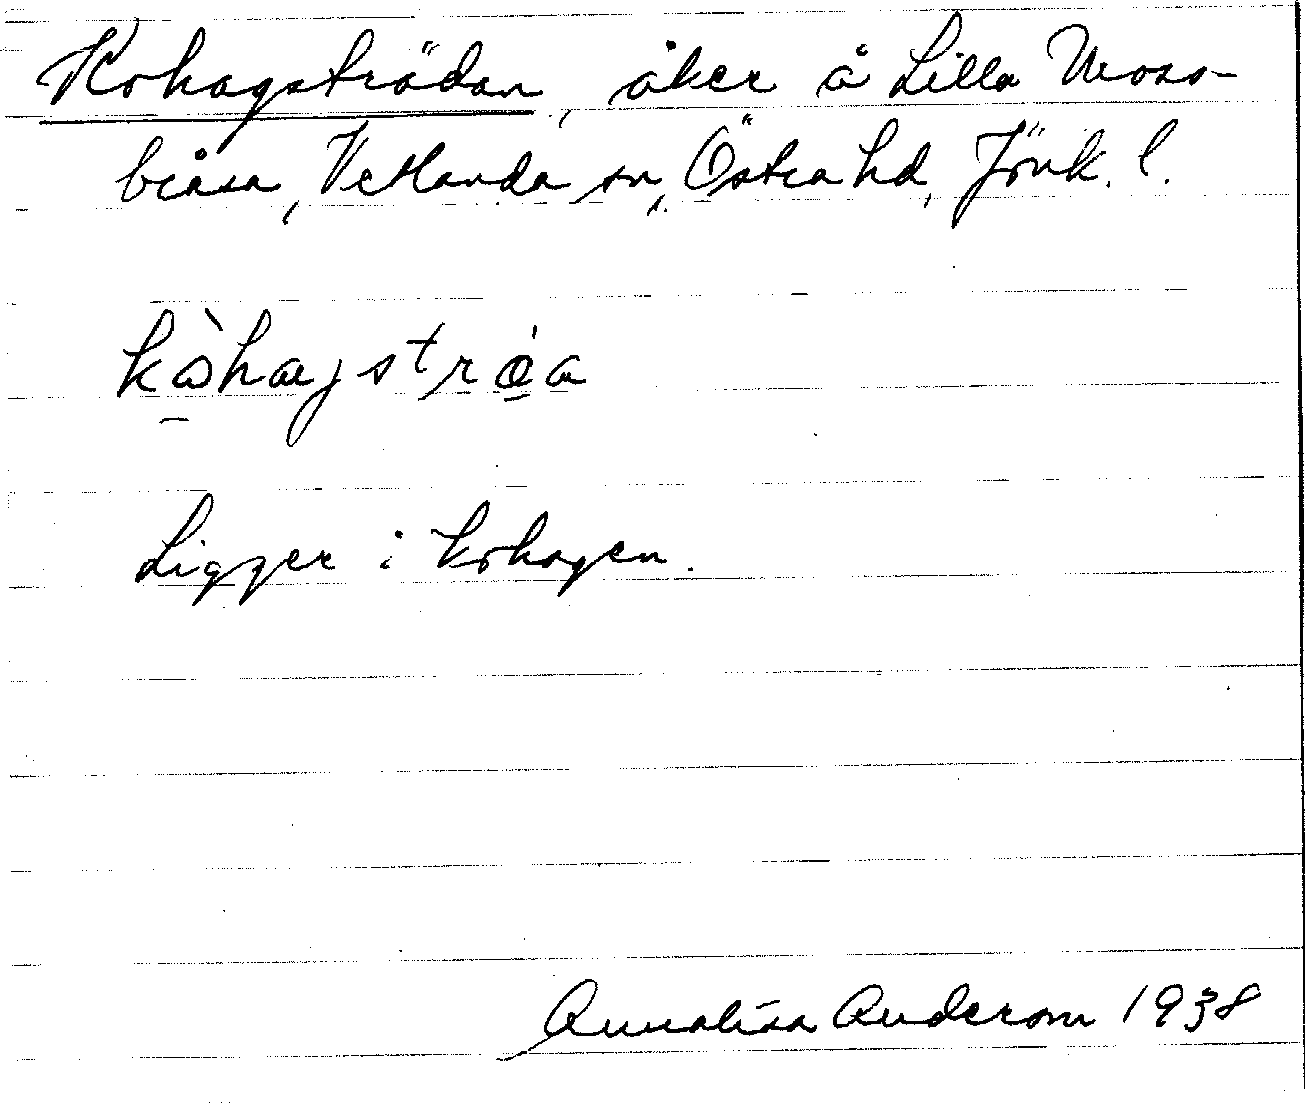 Kohagsträdan, åker å Lilla Moss-
bråna, Vetlanda sn, Östra hd, Jönk. l.
kòhagströ̀a
Ligger i kohagen.
Annalisa Anderson 1938